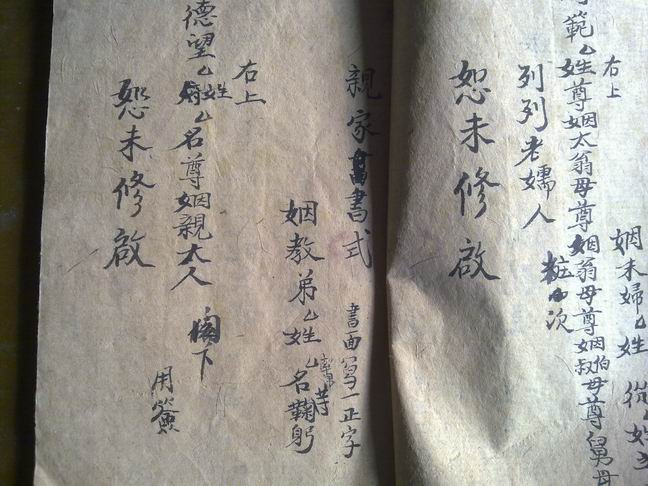 姻未婦厶姓
右上
範厶姓尊姻太翁母尊姻翁母尊姻伯叔母尊舅母
列列老孺人 粧次
恕未修啟
親家書書式 書面寫一正字
姻教弟厶姓厶名鞠躬
右上
德望厶姓厶名尊姻親大人 閣下
恕未修啟 用簽